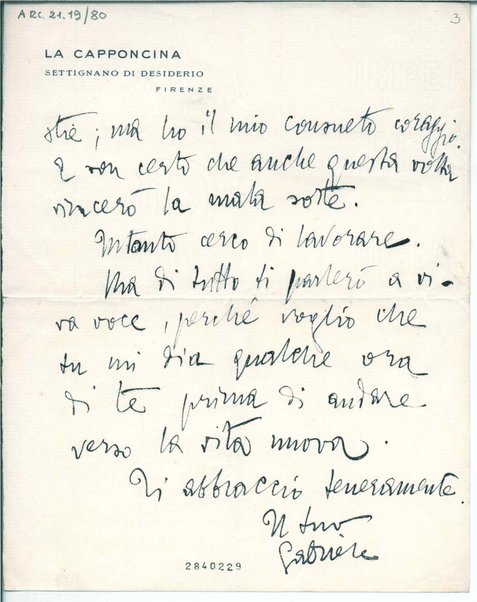 ARC. 21.19/80
3
LA CAPPONCINA
SETTIGNANO DI DESIDERIO
FIRENZE
stie; ma ho il mio consueto coraggio.
E son certo che anche questa volta
vincerò la mala sorte.
Intanto cerco di lavorare.
Ma di tutto ti parlerò a vi-
va voce, perché voglio che
tu mi dia qualche ora
di te prima di andare
verso la vita nuova.
Ti abbraccio teneramente.
Il tuo
Gabriele
2840229